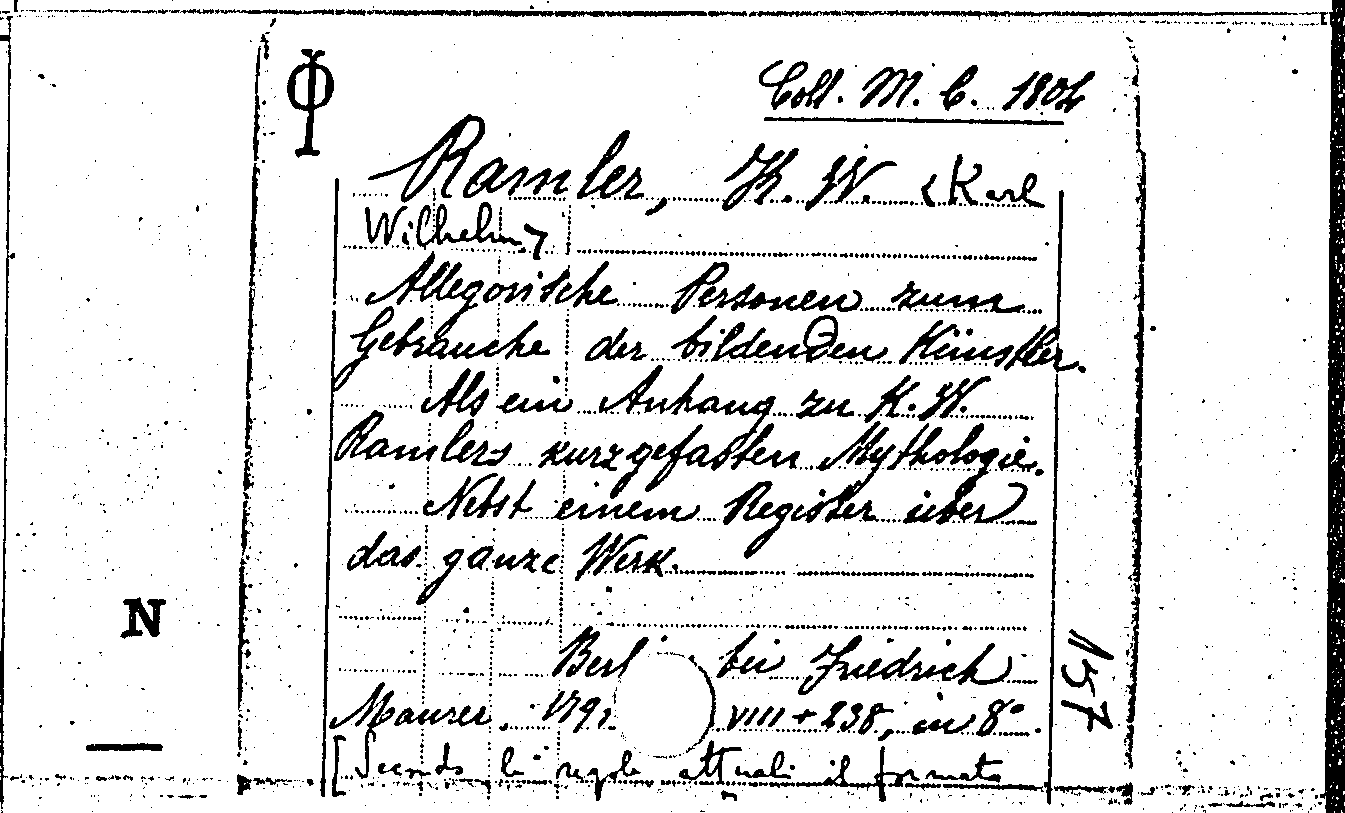 Φ
Coll. M. C. 1804
Ramler, K. W. <Karl
Wilhelm>
Allegorische Personen zum
Gebrauche der bildenden Künstler.
Als ein Anhang zu K. W.
Ramlers kurzgefasten Mythologie.
Nebst einem Register über
das ganze Werk.
N
Berl bei Friedrich
Maurer, 1791. VIII + 238, in 8°.
157
[Secondo le regole attuali il formato